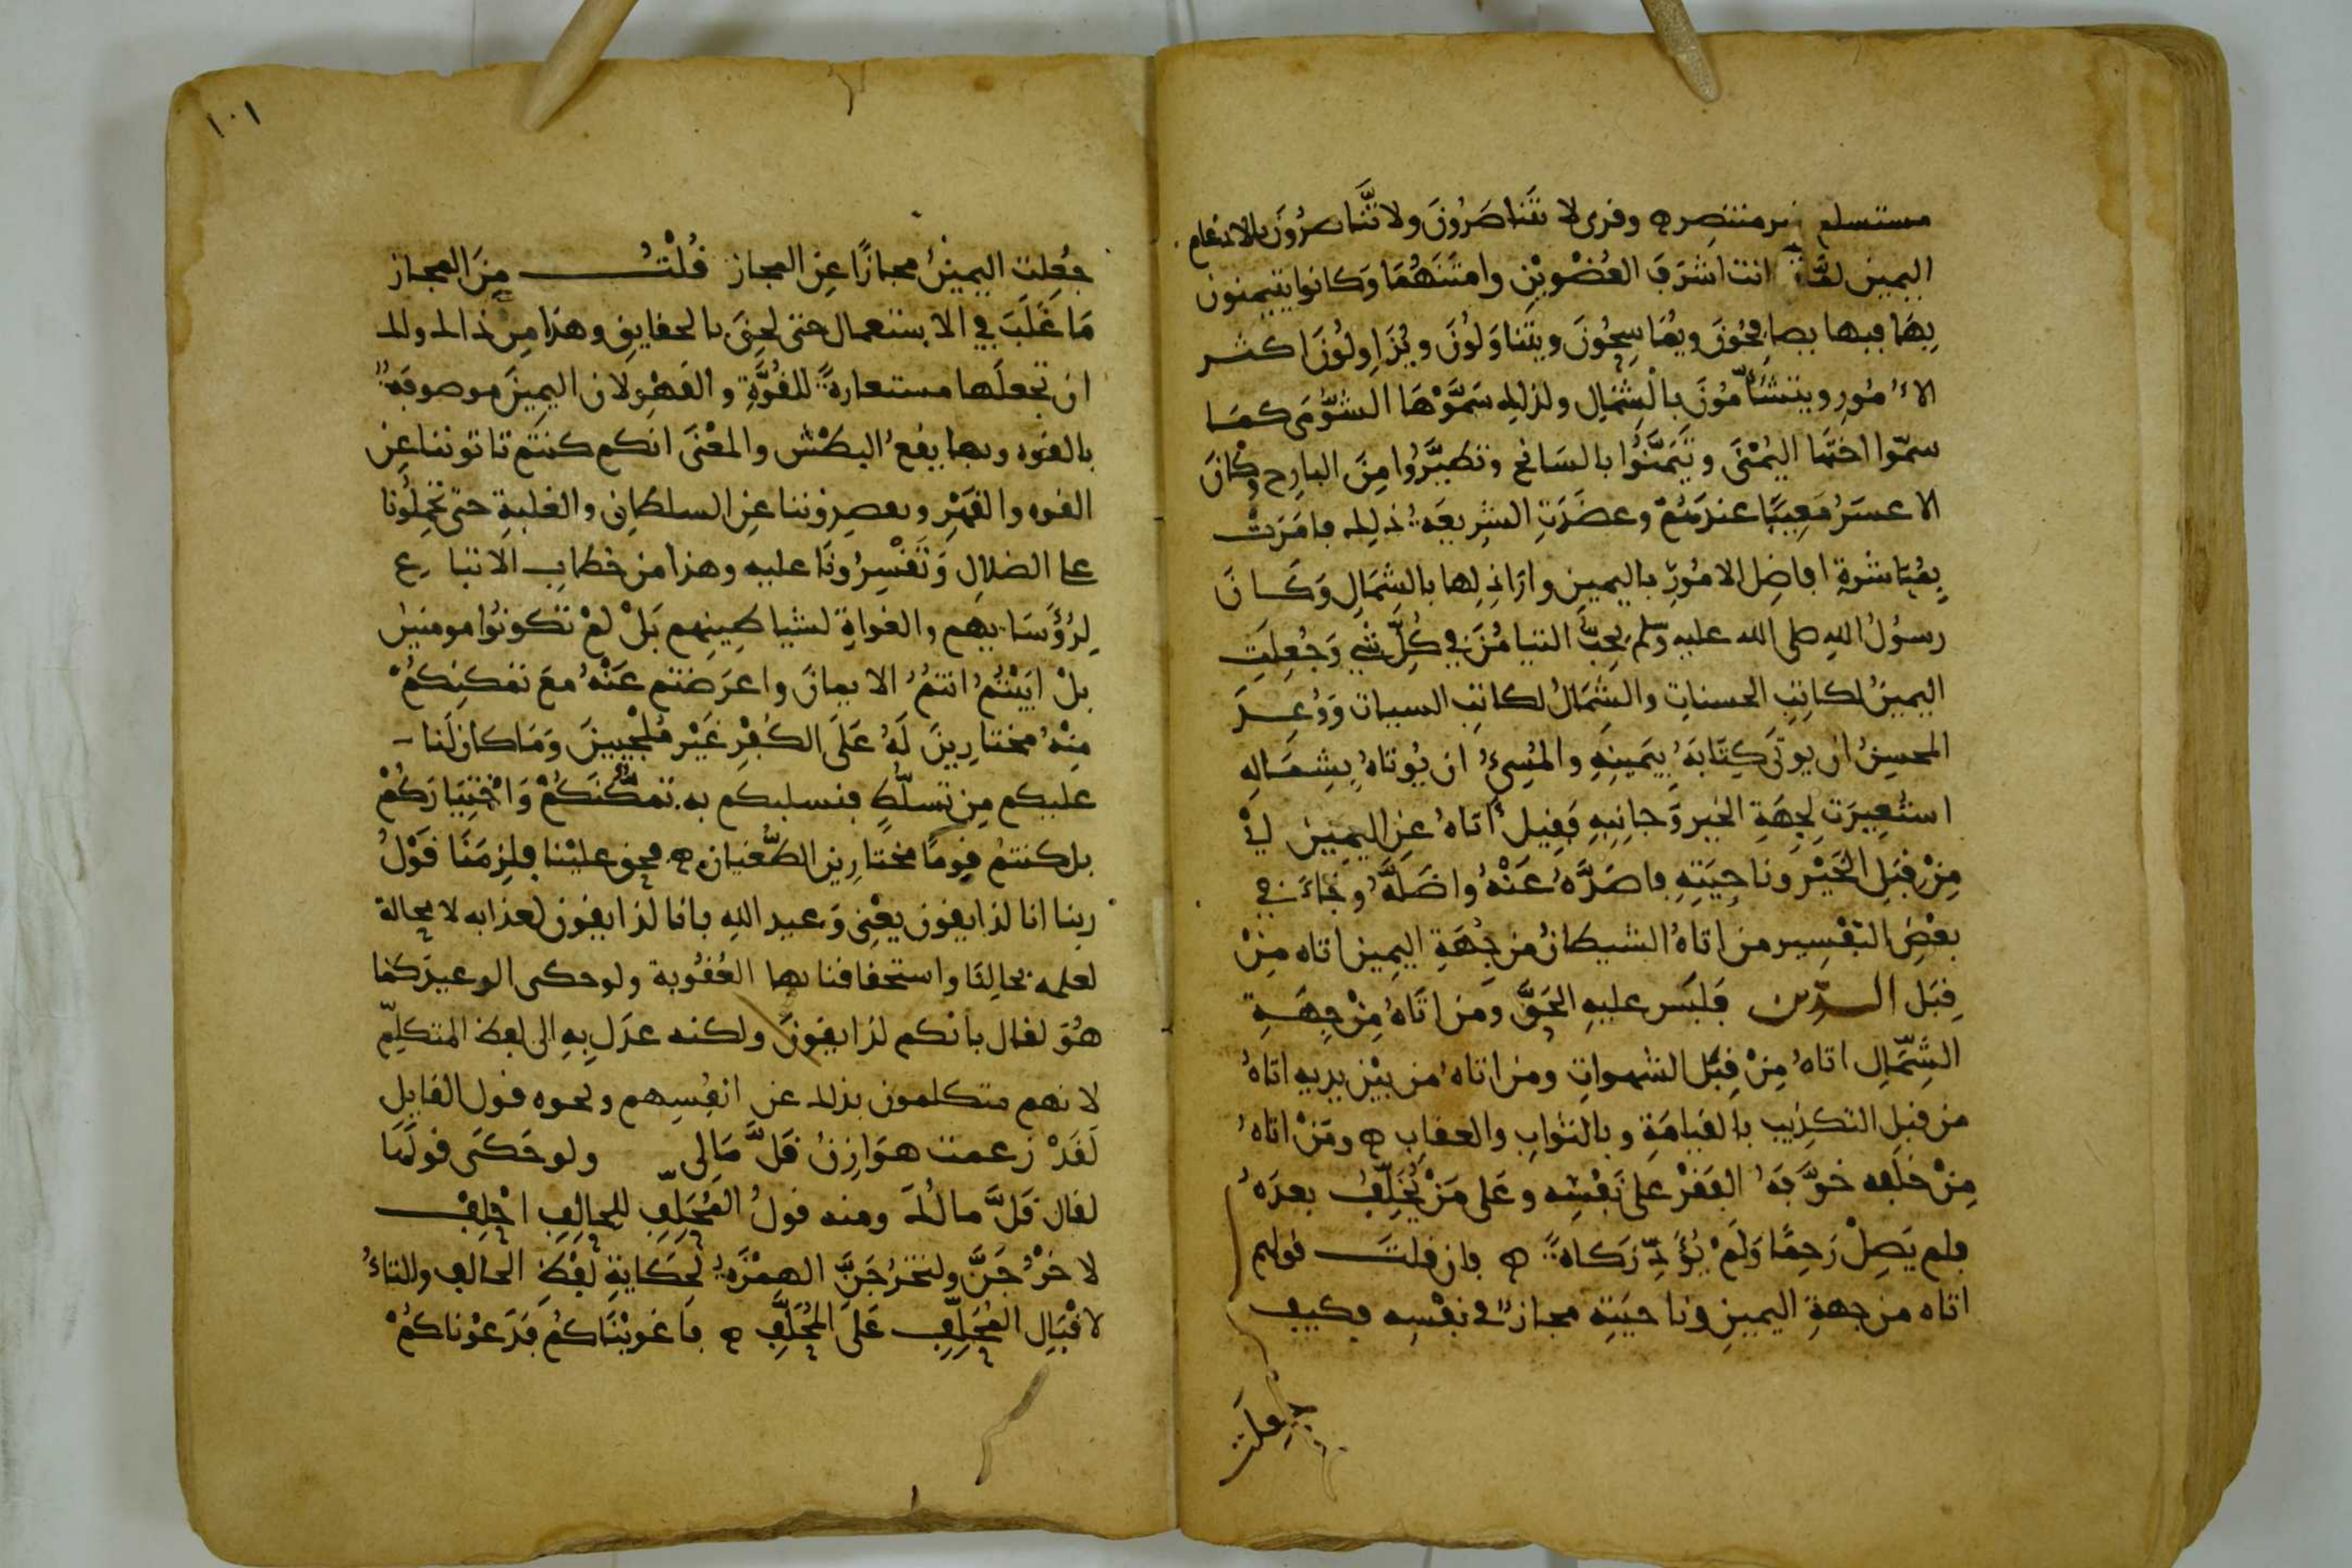 مستسلم غير منتصر ه وقرى لا تَتَناصَرُونَ ولا تَّنَاصرُونَ بالادغام
اليمين لمَّا كانت اشرَفَ العُضْويْنِ وامتَنَهُمَا وَكانوا يتيمنون
بِهَا فبها يصافِحُونَ ويُمَاسِحُونَ ويتَناوَلُونَ ويُزَاوِلُونَ اكثر
الاُمُورِ ويتشَأّمُونَ بِالشِمَالِ ولذلِك سَمَّوْهَا الشُّؤْمَى كمَا
سمّوا اختَهَا اليُمْنَى وتَيَمَّنُوا بالسَانح وتطيَّرُوا مِنَ البارِح وكانَ
الاعسَرُ مَعِيبًا عندَهُمْ وعضَدَتِ الشرِيعَةُ ذلِك فامَرَتْ
بِمُبَاشَرةِ افاضِل الامُورِ باليمينِ وارَاذِلِها بالشِمَالِ وَكَانَ
رسوُلُ اللهِ صلى الله عليه وسَلم يُحِبُّ التيامُنَ في كُلِّ شيءٍ وَجُعِلَتِ
اليمينُ لكاتِبِ الحسناتِ والشِمَالُ لكاتِبِ السيات وَوُعِدَ
المحسِنُ ان يوتَى كِتَابَهُ بِيَمينِهِ والمُسِيُ ان يُوتاهُ بِشِمَالِهِ
استُعِيرَت لِجِهَةِ الخير وَجانِبِهِ فَقِيلَ أتاهُ عنِ اليَمِينِ أَيْ
مِنْ قِبَلِ الخَيْرِ وناحِيَتِهِ فاصَدَّهُ عَنْهُ واضَلَّهُ وَجَاءَ في
بعْضِ التفْسِير من اتاهُ الشيطانُ من جِهَةِ اليمِينِ اتاه مِنْ
قِبَلِ الدِّين فَلبَس عليهِ الحَقَّ وَمَن اتَاهُ مِنْ جِهَةِ
الشِّمَالِ اتاهُ مِنْ قِبَلِ الشهواتِ ومن اتاهُ من بيْنِ يديه اتاهُ
من قِبَلِ التكذِيبِ بالقيامَةِ وبالثوابِ والعقابِ ه ومَنْ اتاهُ
مِنْ خلفه خوَّفَهُ الفَقْرَ عَلى نَفْسِه وعَلى مَنْ يُخَلِّفُ بعدَهُ
فلم يَصِلْ رَحِمًا وَلَمْ يُؤَدِّ زَكاةً ه فان قلتَ قولهم
اتاه من جهةِ اليمينِ وناحيَتِهِ مجازٌ في نفْسِه فكيف
جعلت
١٠١
جعُلِتِ اليمينُ مجازًا عنِ المجاز قُلْتُ مِنَ المجاز
مَا غَلَبَ في الاستعمال حتى لحِقَ بالحقايقِ وهذا مِن ذاك ولك
ان تجعلَها مستعارةً للقُوَّةِ والقَهْرِ لان اليمِينَ موصوفَةٌ
بالقوه وبها يقعُ البطْشُ والمعْنَى انكم كنتم تاتوننا عنِ
القوه والقَهْرِ وتقصِدُوننا عنِ السلطانِ والغلبةِ حتى تحْمِلُونا
على الضلالِ وَتَقْسِرُونَا عليه وهذا من خطابِ الاتباع
لِرُؤَسَايهم والغواةِ لشياطينِهم بَلْ لمْ تكونُوا مومنين
بلْ ابَيْتُمُ انتمُ الايمانَ واعرَضتم عَنْهُ معَ تمَكنِكُمْ
مِنْهُ مختارِينَ لَهُ عَلَى الكُفْرِ غَيْر مُلْجَيِينَ وَمَا كان لَنا
عليكم مِن تَسلّطٍ فنسلبكم به تمَكُّنَكُمْ وَاخْتِيَارَكُمْ
بل كنتمُ قومًا مختارِين الطُّغْيَان ه فحق عليْنا فلِزمَنَا قوْلُ
ربنا انا لذايقون يعْنِي وَعيد اللهِ بانا لذايقون لعذابه لا محالة
لعلمه بحالِنَا واستحقاقنا بها العُقُوبة ولو حكى الوعيدَ كما
هُوَ لقال بانكم لذايقونَ ولكنه عدَل بِهِ الى لفظ المتكلِّم
لانهم متكلمون بذلك عن انفُسِهم ونحوه قول القايِلِ
لَقَدْ زعمت هوَازِنُ قَلَّ مَالِى ولو حَكَى قولَهَا
لقال قَلَّ مالُكَ ومنه قولُ المُحَلِّفِ للحالِفِ احْلِفْ
لاخْرُجَنَّ ولتخرُجَنَّ الهمْزَةُ لحِكايةِ لفْظِ الحالف والتاءُ
لاقْبَالِ المُحَلِّفِ عَلَى المُحَلَّفِ ه فاغويْنَاكُمْ فدَعوْناكُمْ